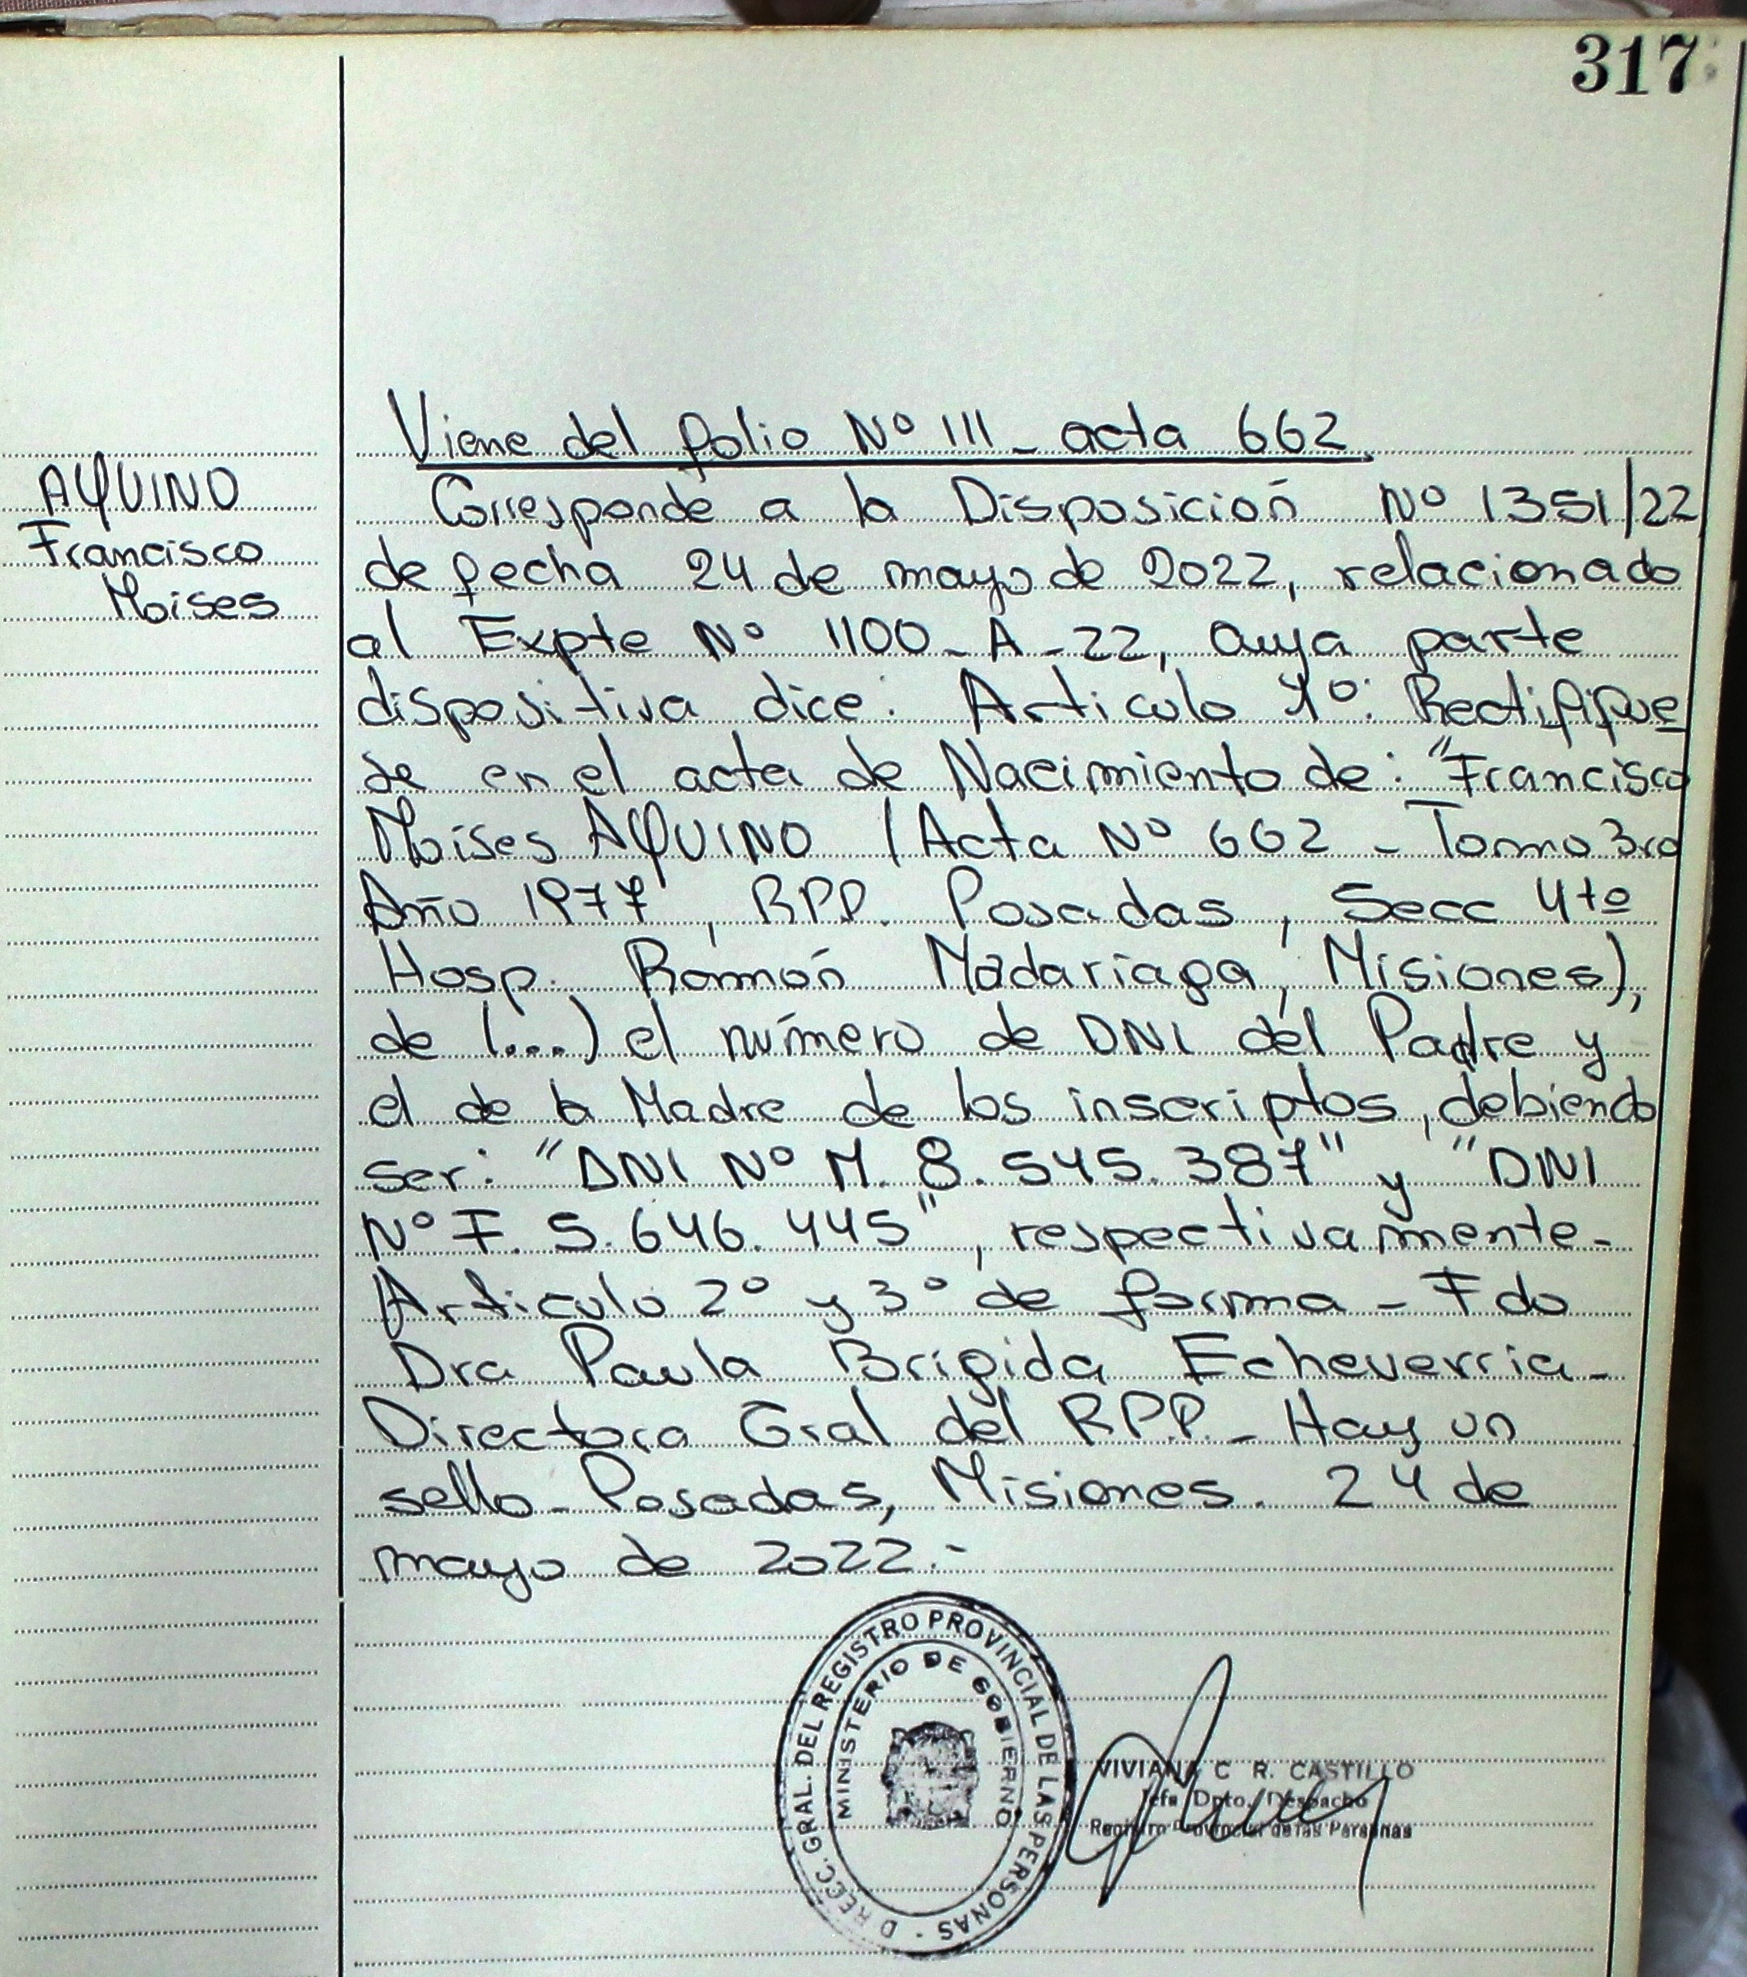 317
Viene del folio Nº 111 - acta 662.
AQUINO
Francisco
Moises
Corresponde a la Disposición Nº 1351/22
de fecha 24 de mayo de 2022, relacionado
al Expte Nº 1100-A-22, cuya parte
dispositiva dice: Articulo 1º: Rectifique
se en el acta de Nacimiento de: "Francisco
Moises AQUINO (Acta Nº 662 - Tomo 3ro
Año 1977, RPP. Posadas, Secc 4to
Hosp. Ramón Madariaga, Misiones),
de (...) el número de DNI del Padre y
el de la Madre de los inscriptos, debiendo
ser: "DNI Nº M. 8.545.387" y "DNI
Nº F. 5.646.445", respectivamente-
Articulo 2º y 3º de forma - Fdo
Dra Paula Brígida Echeverria-
Directora Gral del RPP.- Hay un
sello- Posadas, Misiones. 24 de
mayo de 2022.-
DIRECC. GRAL. DEL REGISTRO PROVINCIAL DE LAS PERSONAS -
MINISTERIO DE GOBIERNO
VIVIANA C R. CASTILLO
Jefa Dpto. Despacho
Registro Provincial de las Personas